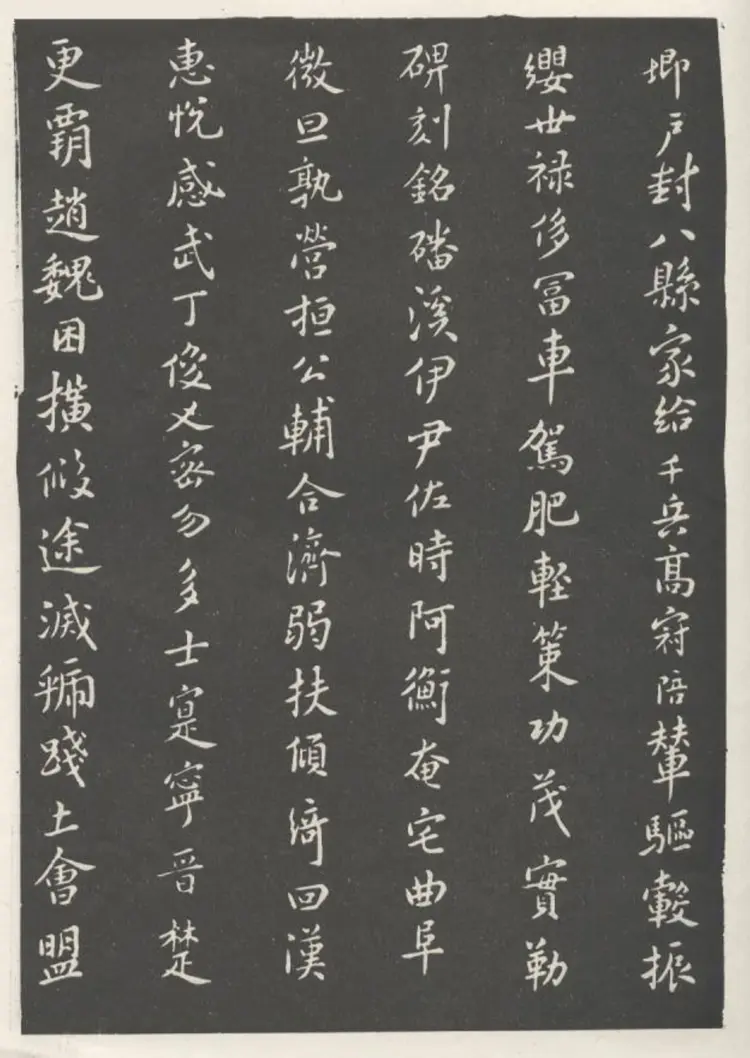 卿户封八縣家給千兵高冠陪輦驅轂振
纓世禄侈冨車駕肥輕策功茂實勒
碑刻銘磻溪伊尹佐時阿衡奄宅曲阜
微旦孰營桓公輔合濟弱扶傾綺回漢
惠悅感武丁俊乂密勿多士寔寧晉楚
更覇趙魏困橫假途滅虢踐土會盟